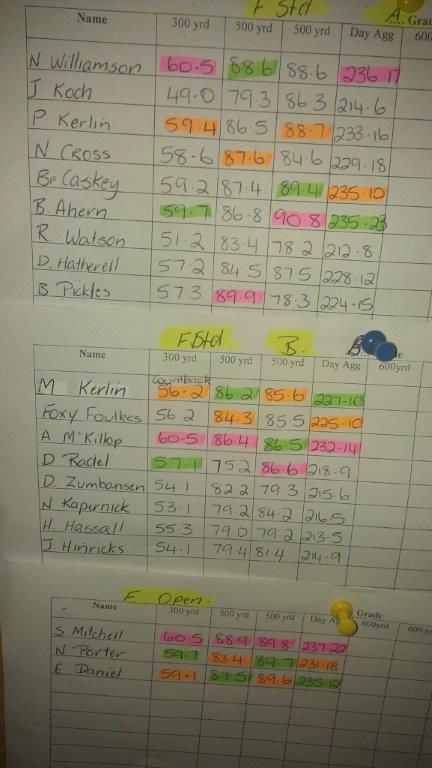 F Std A. Grade
Name 300 yrd 500 yrd 500 yrd Day Agg 600
N Williamson 60.5 88.6 88.6 236.17
J Koch 49.0 79.3 86.3 214.6
P Kerlin 59.4 86.5 88.7 233.16
N Cross 58.6 87.6 84.6 229.18
Be Caskey 59.2 87.4 89.4 235.10
B. Ahern 59.7 86.8 90.8 235.23
R. Watson 51.2 83.4 78.2 212.8
D. Hatherell 57.2 84.5 87.5 228.12
B Pickles 57.3 89.9 78.3 224.15
F Std B.
Name 300 yrd 500 yrd 500 yrd Day Agg 600yrd
Countback
M Kerlin 56.2 86.2 85.6 227.10
Foxy Foulkes 56.2 84.3 85.5 225.10
A McKillop 60.5 86.4 86.5 232.14
D Radel 57.1 75.2 86.6 218.9
D. Zumbansen 54.1 82.2 79.3 215.6
N Kapernick 53.1 79.2 84.2 216.5
H. Hassall 55.3 79.0 79.2 213.5
J Hinricks 54.1 79.4 81.4 214.9
F Open. Grade
Name 300 yrd 500 yrd 500 yrd Day 600yrd 600 yr
S Mitchell 60.5 88.9 89.8 237.22
N Porter 59.7 83.4 89.7 231.18
E Daniel 59.1 87.5 89.6 235.12